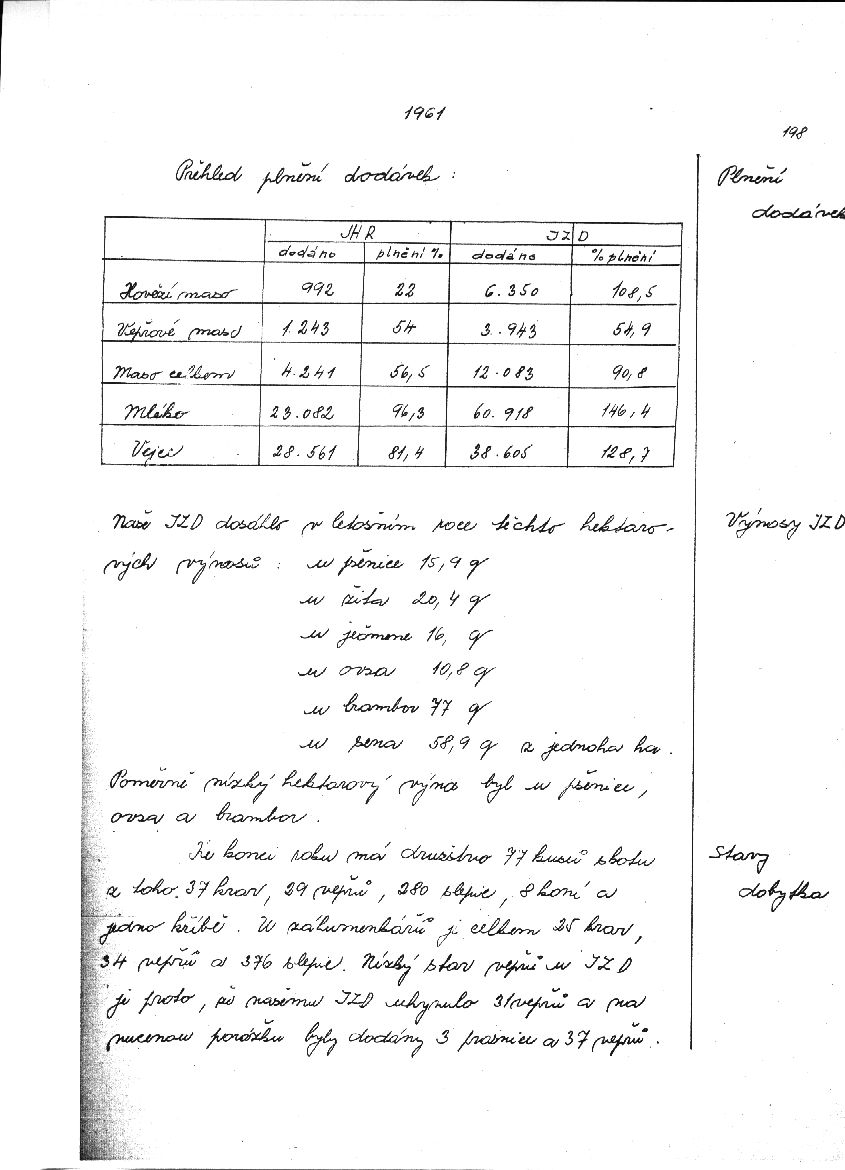 1961
198
Přehled plnění dodávek :
Plnění
dodávek
JHR JZD
dodáno plnění % dodáno % plnění
Hovězí maso 992 22 6.350 108,5
Vepřové maso 1.243 54 3.943 54,9
Maso celkem 4.241 56,5 12.083 90,8
Mléko 23.082 96,3 60.918 146,4
Vejci 28.561 81,4 38.605 128,7
Naše JZD dosáhlo v letošním roce těchto hektaro-
Výnosy JZD
vých výnosů : u pšenice 15,9 q
u žita 20,4 q
u ječmene 16, q
u ovsa 10,8 q
u brambor 77 q
u sena 58,9 q z jednoho ha.
Poměrně nízký hektarový výnos byl u pšenice,
ovsa a brambor.
Ke konci roku má družstvo 77 kusů skotu
Stavy
z toho 37 krav, 29 vepřů, 280 slepic, 8 koní a
dobytka
jedno hříbě. U záhumenkářů je celkem 25 krav,
34 vepřů a 376 slepic. Nízký stav vepřů u JZD
je proto, že našemu JZD uhynulo 31 vepřů a na
nucenou porážku byly dodány 3 prasnice a 37 vepřů.